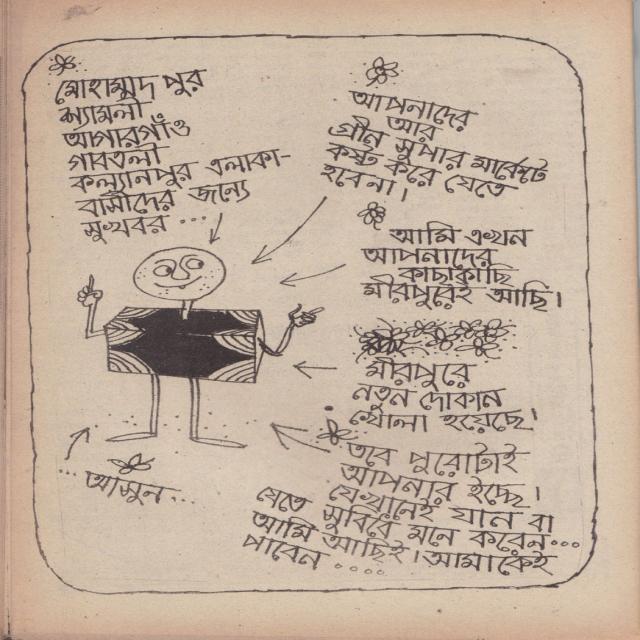 মোহাম্মদ পুর
শ্যামলী
আগারগাঁও
গাবতলী
কল্যানপুর এলাকা-
বাসীদের জন্যে
সুখবর ...
আপনাদের
আর
গ্রীন সুপার মার্কেটে
কষ্ট করে যেতে
হবেনা।
আমি এখন
আপনাদের
কাছাকাছি
মীরপুরেই আছি।
মীরপুরে
নতুন দোকান
খোলা হয়েছে।
তবে পুরোটাই
আপনার ইচ্ছে।
যেখানেই যান বা
যেতে সুবিধে মনে করেন...
আমি আছিই। আমাকেই
পাবেন ....
... আসুন...